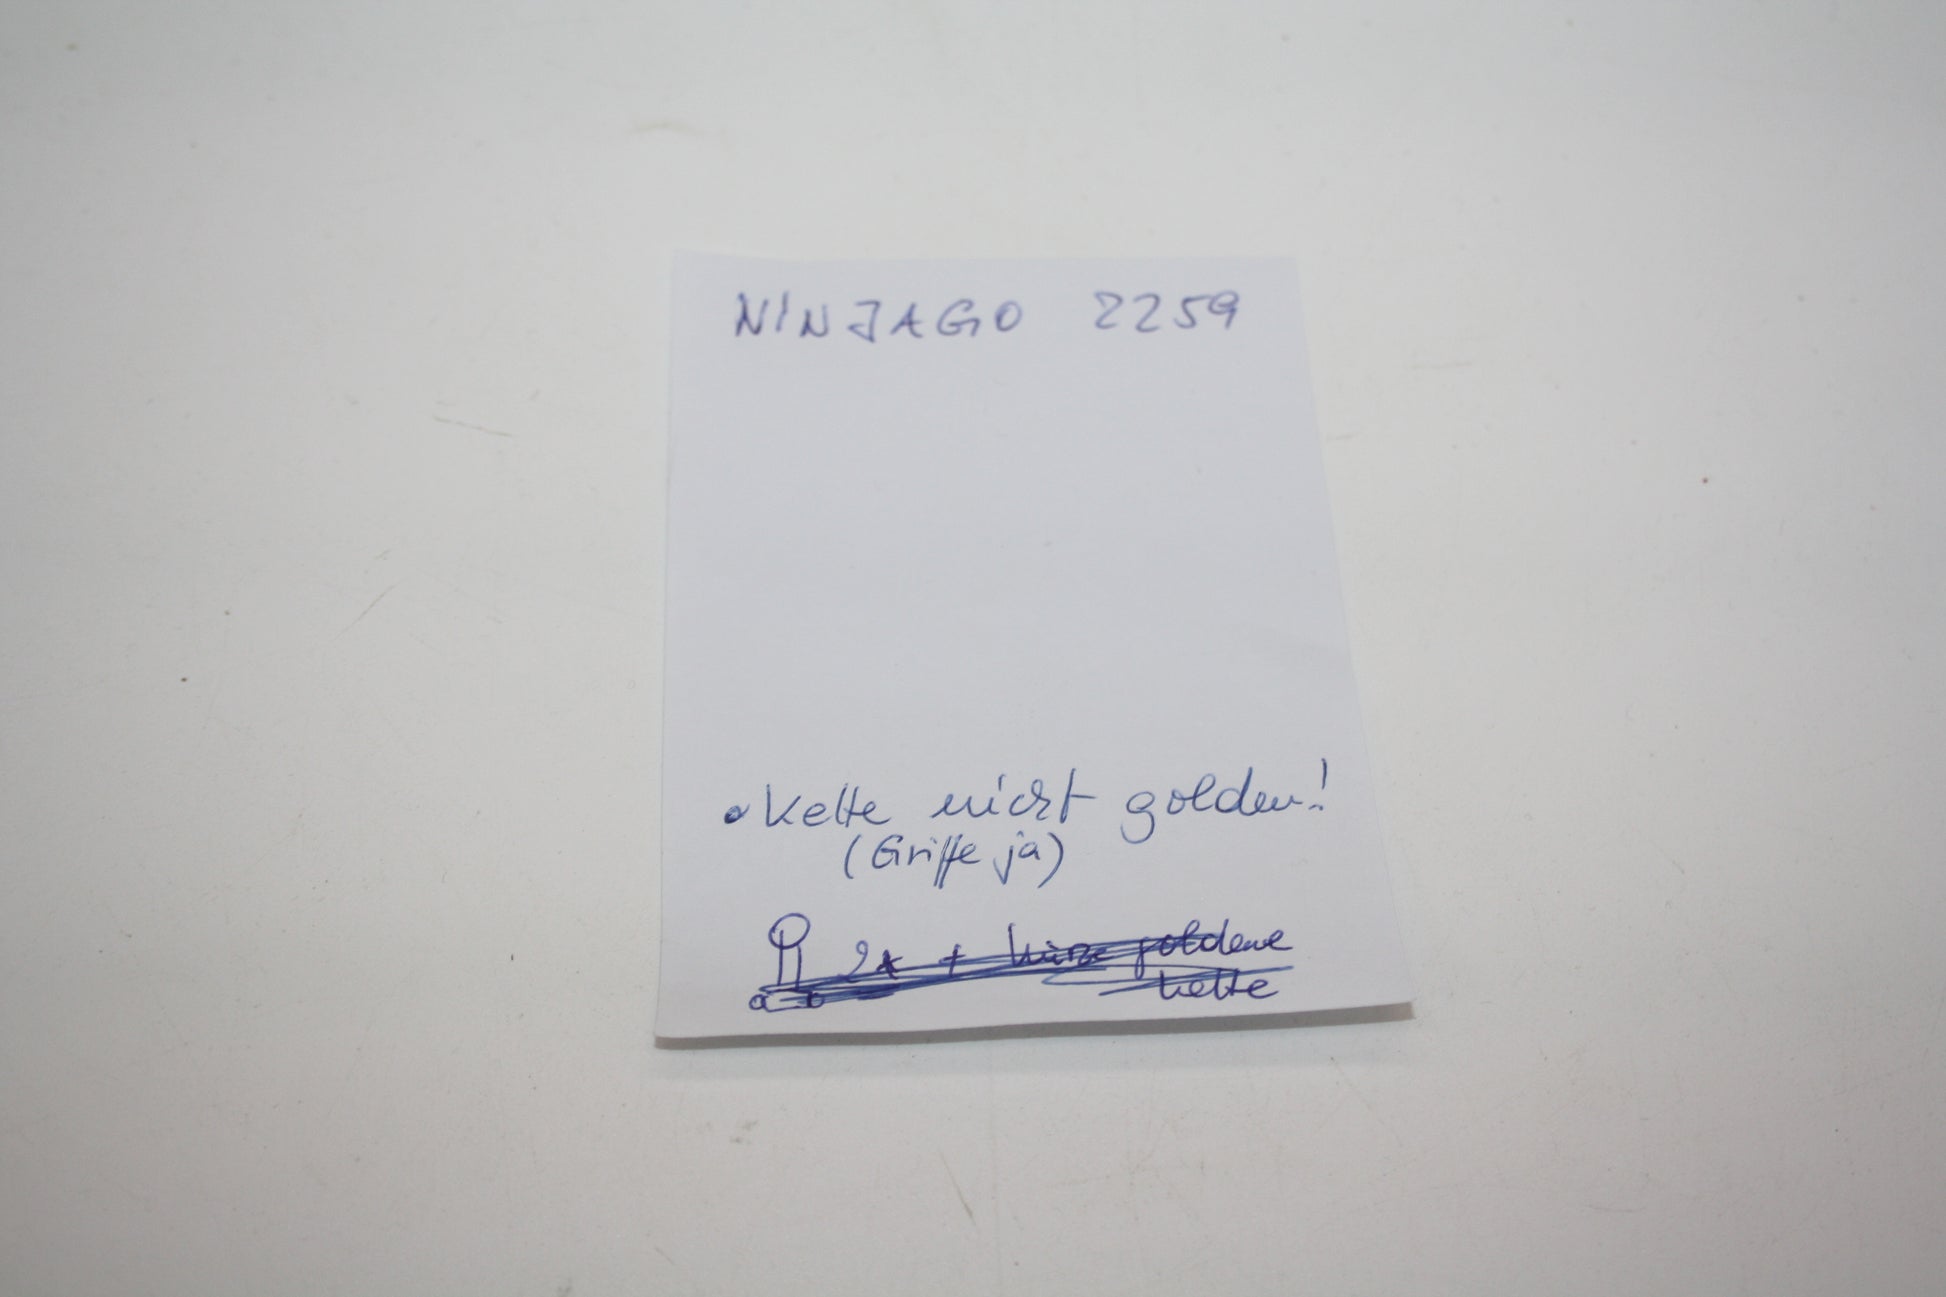 NINJAGO 2259
• Kette nicht golden!
(Griffe ja)
2x + kurze goldene
kette